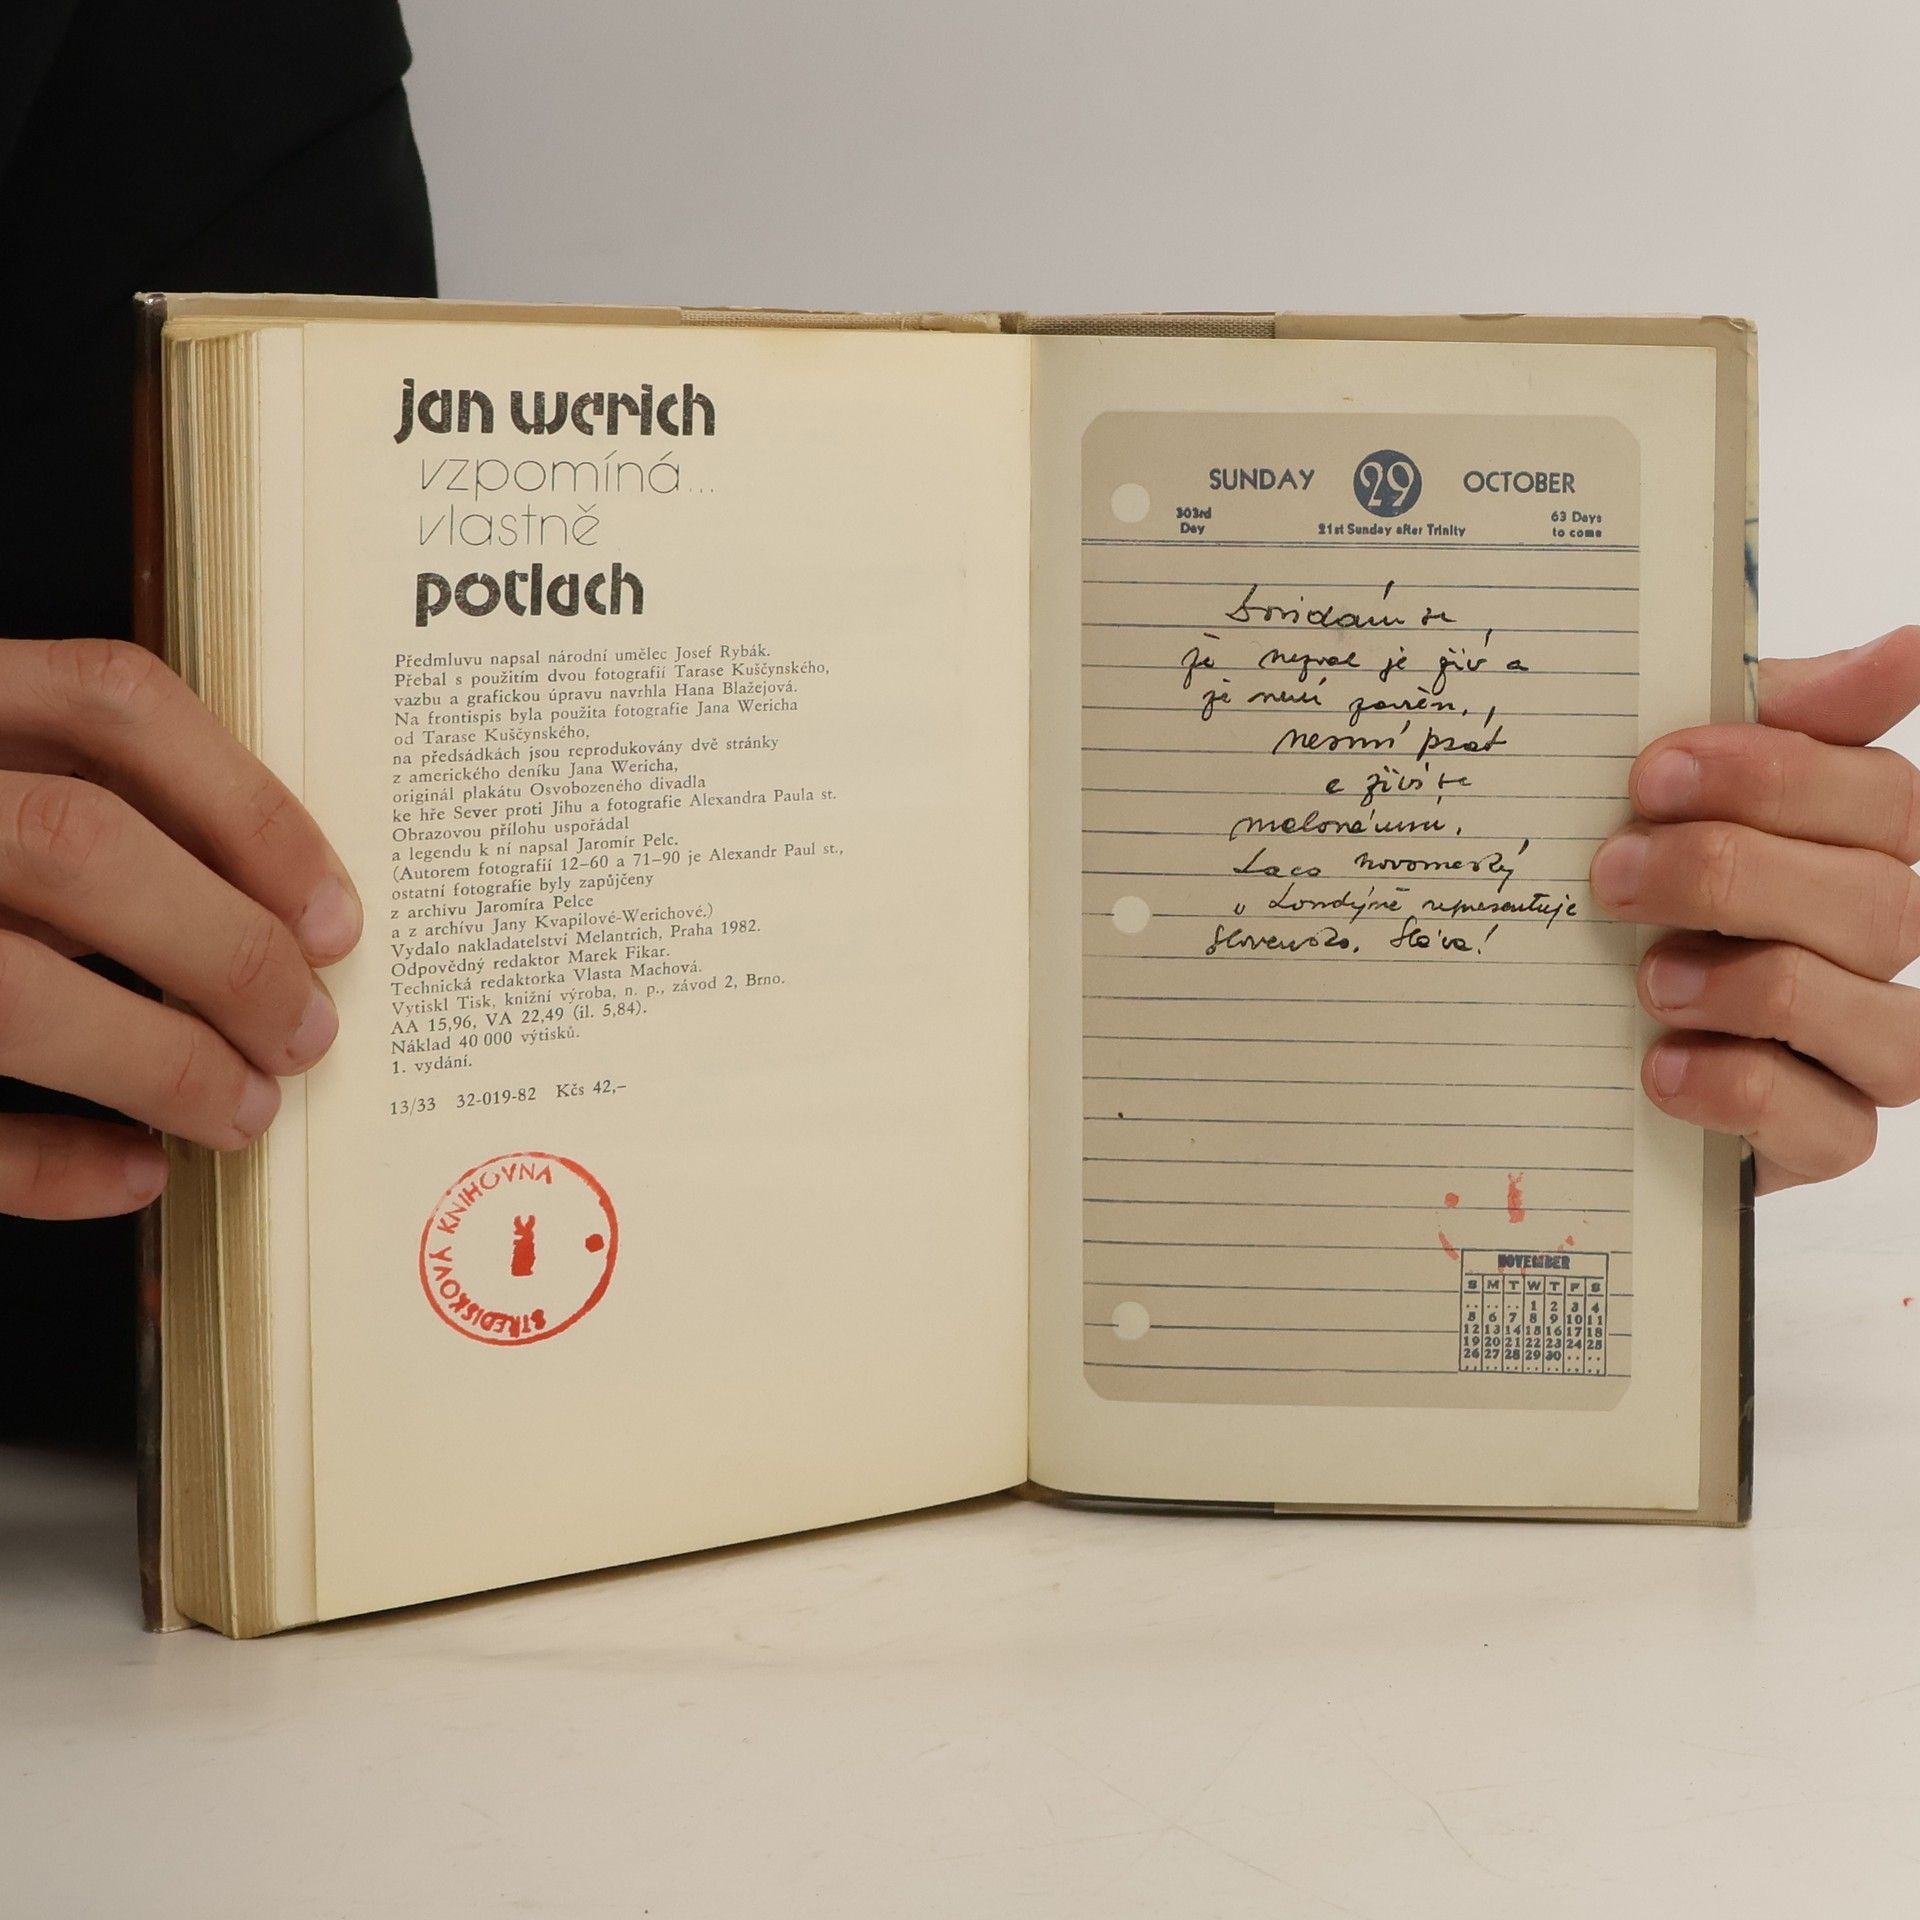 jan werich
vzpomíná...
vlastně
potlach
Předmluvu napsal národní umělec Josef Rybák.
Přebal s použitím dvou fotografií Tarase Kuščynského,
vazbu a grafickou úpravu navrhla Hana Blažejová.
Na frontispis byla použita fotografie Jana Wericha
od Tarase Kuščynského,
na předsádkách jsou reprodukovány dvě stránky
z amerického deníku Jana Wericha,
originál plakátu Osvobozeného divadla
ke hře Sever proti Jihu a fotografie Alexandra Paula st.
Obrazovou přílohu uspořádal
a legendu k ní napsal Jaromír Pelc.
(Autorem fotografií 12–60 a 71–90 je Alexandr Paul st.,
ostatní fotografie byly zapůjčeny
z archívu Jaromíra Pelce
a z archívu Jany Kvapilové-Werichové.)
Vydalo nakladatelství Melantrich, Praha 1982.
Odpovědný redaktor Marek Fikar.
Technická redaktorka Vlasta Machová.
Vytiskl Tisk, knižní výroba, n. p., závod 2, Brno.
AA 15,96, VA 22,49 (il. 5,84).
Náklad 40 000 výtisků.
1. vydání.
13/33 32-019-82 Kčs 42,–
STŘEDISKOVÁ KNIHOVNA
SUNDAY 29 OCTOBER
303rd Day 21st Sunday after Trinity 63 Days to come
Dovídám se,
že nezval je živ a
že není zavřen,
nesmí psát
a živí se
malováním.
Laco novomeský
v Londýně representuje
Slovensko. Sláva!
NOVEMBER
S M T W T F S
.. .. .. 1 2 3 4
5 6 7 8 9 10 11
12 13 14 15 16 17 18
19 20 21 22 23 24 25
26 27 28 29 30 .. ..